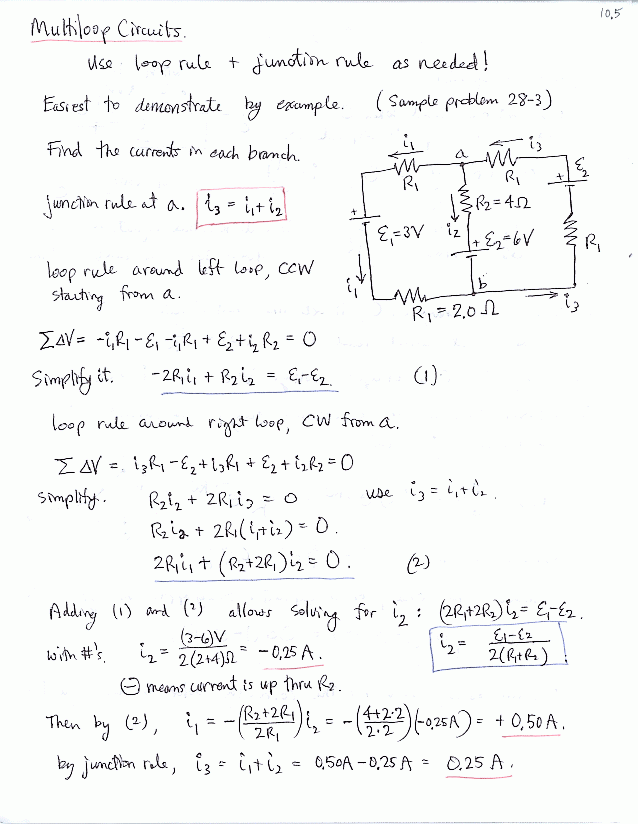 10.5
Multiloop Circuits.
Use loop rule + junction rule as needed!
Easiest to demonstrate by example. (Sample problem 28-3)
Find the currents in each branch.
junction rule at a. i₃ = i₁+i₂
loop rule around left loop, CCW
starting from a.
i₁
a
i₃
R₁
R₁
ε₂
+
R₂=4Ω
+
ε₁=3V
i₂
+ ε₂=6V
R₁
i₁
b
R₁ = 2.0 Ω
i₃
ΣΔV = -i₁R₁ - ε₁ - i₁R₁ + ε₂ + i₂R₂ = 0
Simplify it. -2R₁i₁ + R₂i₂ = ε₁-ε₂. (1)
loop rule around right loop, CW from a.
ΣΔV = i₃R₁ - ε₂ + i₃R₁ + ε₂ + i₂R₂ = 0
Simplify. R₂i₂ + 2R₁i₃ = 0 use i₃ = i₁+i₂.
R₂i₂ + 2R₁(i₁+i₂) = 0.
2R₁i₁ + (R₂+2R₁)i₂ = 0. (2)
Adding (1) and (2) allows solving for i₂ : (2R₁+2R₂)i₂ = ε₁-ε₂.
with #'s. i₂ = (3-6)V / 2(2+4)Ω = -0.25 A. i₂ = ε₁-ε₂ / 2(R₁+R₂).
⊖ means current is up thru R₂.
Then by (2), i₁ = -(R₂+2R₁ / 2R₁) i₂ = -(4+2·2 / 2·2)(-0.25A) = + 0.50 A.
by junction rule, i₃ = i₁+i₂ = 0.50A - 0.25 A = 0.25 A.